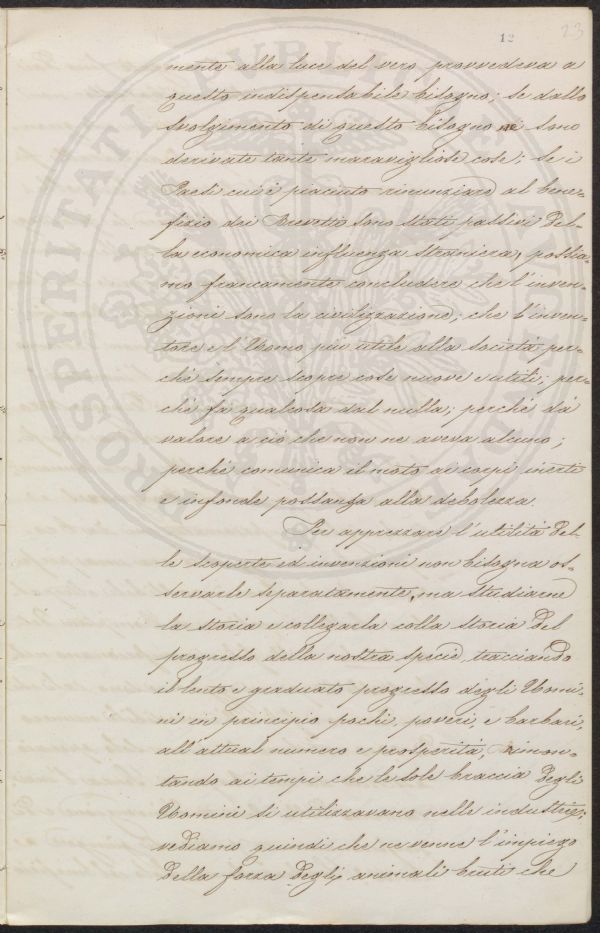 12 23
mente alla luce del vero, provvedeva a
questo indispensabile bisogno; se dallo
svolgimento di questo bisogno ne sono
derivate tante maravigliose cose; se i
Paesi cui è piaciuto rinunziare al bene-
fizio dei Brevetti sono stati passivi del-
la economica influenza straniera, possia-
mo francamente concludere che l'inven-
zioni sono la civilizzazione; che l'inven-
tore e l'Uomo più utile alla società per-
chè sempre scopre cose nuove e utili; per-
chè fa qualcosa dal nulla; perchè dà
valore a ciò che non ne aveva alcuno;
perchè comunica il moto ai corpi inerti
e infonde possanza alla debolezza.
Per apprezzare l'utilità del-
le scoperte ed invenzioni non bisogna os-
servarle separatamente, ma studiarne
la storia e collegarla colla storia del
progresso della nostra specie, tracciando
il lento e graduato progresso degli Uomi-
ni in principio pochi, poveri, e barbari,
all'attual numero e prosperità; rimon-
tando ai tempi che le sole braccia degli
Uomini si utilizzavano nelle industrie;
vediamo quindi che ne venne l'impiego
della forza degli animali bruti che
PROSPERITATI PUBLICAE AUGENDAE